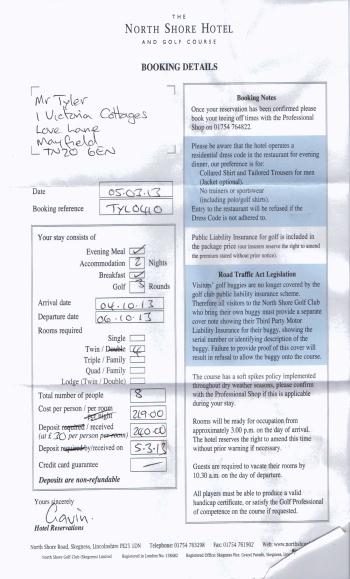 THE
NORTH SHORE HOTEL
AND GOLF COURSE
BOOKING DETAILS
Mr Tyler
1 Victoria Cottages
Love Lane
Mayfield
TN20 6EN
Date 05.03.13
Booking reference TYL0410
Your stay consists of
Evening Meal ✓
Accommodation 2 Nights
Breakfast ✓
Golf 3 Rounds
Arrival date 04.10.13
Departure date 06.10.13
Rooms required
Single
Twin / Double 4
Triple / Family
Quad / Family
Lodge (Twin / Double)
Total number of people 8
Cost per person / per room
per night 219.00
Deposit required / received 240.00
(at £30 per person per room)
Deposit required by/received on 5.3.13
Credit card guarantee —
Deposits are non-refundable
Yours sincerely
Gavin.
Hotel Reservations
Booking Notes
Once your reservation has been confirmed please
book your teeing off times with the Professional
Shop on 01754 764822.
Please be aware that the hotel operates a
residential dress code in the restaurant for evening
dinner, our preference is for:
Collared Shirt and Tailored Trousers for men
(Jacket optional).
No trainers or sportswear
(including polo/golf shirts).
Entry to the restaurant will be refused if the
Dress Code is not adhered to.
Public Liability Insurance for golf is included in
the package price (our insurers reserve the right to amend the
premium stated without prior notice).
Road Traffic Act Legislation
Visitors' golf buggies are no longer covered by the
golf club public liability insurance scheme.
Therefore all visitors to the North Shore Golf Club
who bring their own buggy must provide a separate
cover note showing their Third Party Motor
Liability Insurance for their buggy, showing the
serial number or identifying description of the
buggy. Failure to provide proof of this cover will
result in refusal to allow the buggy onto the course.
The course has a soft spikes policy implemented
throughout dry weather seasons, please confirm
with the Professional Shop if this is applicable
during your stay.
Rooms will be ready for occupation from
approximately 3.00 p.m. on the day of arrival. The
hotel reserves the right to amend this time
without prior warning if necessary.
Guests are required to vacate their rooms by
10.30 a.m. on the day of departure.
All players must be able to produce a valid
handicap certificate, or satisfy the Golf Professional
of competence on the course if requested.
North Shore Road, Skegness, Lincolnshire PE25 1DN Telephone: 01754 763298 Fax: 01754 761902 Web: www.north
North Shore Golf Club (Skegness) Limited Registered in London No. Registered Office: Skegness Pier, Grand Parade, Skegness,